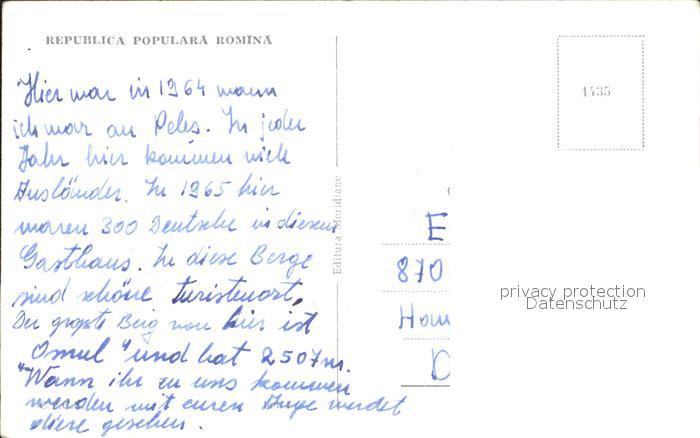 REPUBLICA POPULARĂ ROMÎNĂ
Hier war in 1964 wann
ich war an Peles. In jeder
Jahr hier kommen viele
Ausländer. In 1965 hier
waren 300 Deutsche in diesem
Gasthaus. In diese Berge
sind schöne turistenort,
Der groste Berg von hier ist
"Omul" und hat 2507m.
Wann ihr zu uns kommen
werden mit euren Auge werdet
diese gesehen.
Editura Meridiane
1435
E
870
Hom
D
privacy protection
Datenschutz